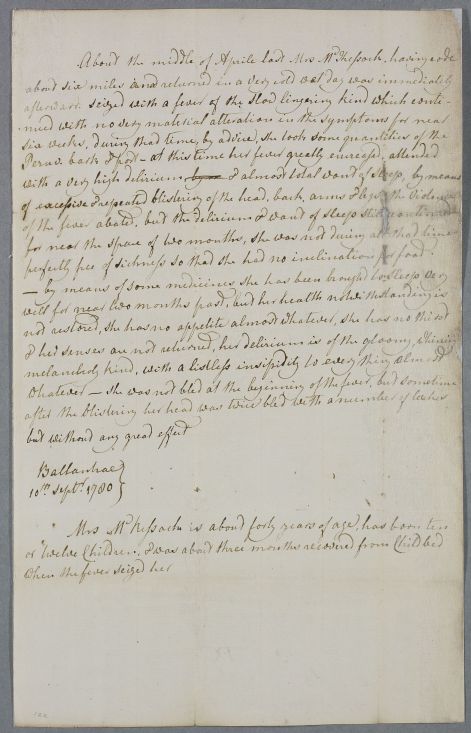 About the middle of Aprile last Mrs McKessock, having rode
about six miles and returned in a very cold wet day was immediatly
afterwars seized with a fever of the slow lingering kind which conti-
nued with no very material alteration in the symptoms for near
six weeks, during that time, by advice, she took some quantities of the
Peruv. bark & port – at this time her fever greatly encreased, attended
with a very high delirium & almost total want of sleep, by means
of excessive & repeated blistering of the head, back, arms & legs the violence
of the fever abated, but the delirium & want of sleep still continued
for near the space of two months, she was not during all that time
perfectly free of sickness so that she had no inclination for food.
– by means of some medicines she has been brought to sleep very
well for near two months past, but her health notwithstanding is
not restored, she has no appetite almost whatever, she has no thirst
& her senses are not returned, her delirium is of the gloomy,
melancholy kind, with a listless insipidity to every thing almost
whatever – she was not bled at the beginning of the fever, but sometime
after the blistering her head was twice bled with a number of leeches
but without any great effect
Ballantrae
10th Septr. 1780
Mrs McKessock is about forty years of age, has born ten
or twelve Children, & was about three months recovered from Childbed
when the fever seized her
122